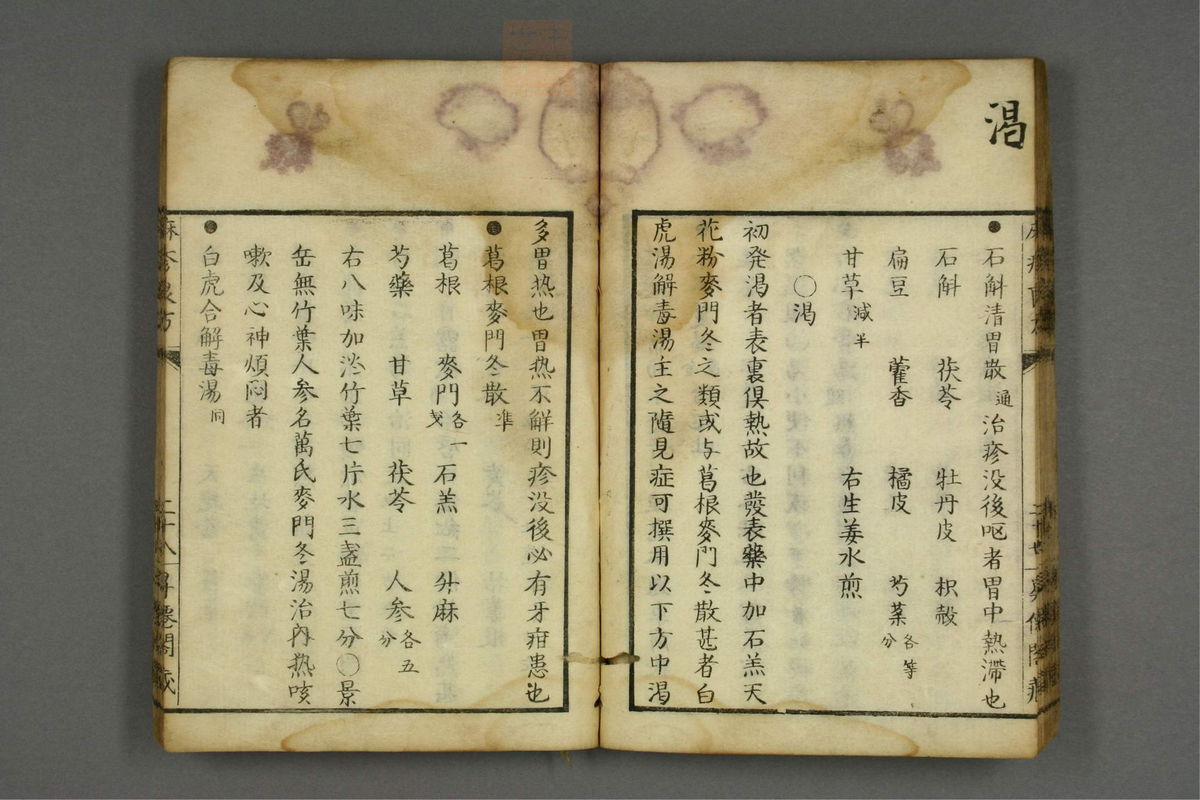 渇
●石斛清胃散通治疹没後呕者胃中熱滞也
石斛 茯苓 牡丹皮 枳殻
扁豆 藿香 橘皮 芍薬各等分
甘草減半 右生姜水煎
〇渇
初発渇者表裏俱熱故也發表藥中加石羔天
花粉麥門冬之類或与葛根麥門冬散甚者白
虎湯解毒湯主之隨見症可撰用以下方中渇
多胃热也胃热不觧則疹没後必有牙疳患也
葛根麥門冬散準
葛根 麥門各一戔 石羔 升麻
芍藥 甘草 茯苓 人参各五分
右八味加淡竹葉七片水三盞煎七分〇景
岳無竹葉人参名萬氏麥門冬湯治內热咳
嗽及心神煩悶者
●白虎合解毒湯同